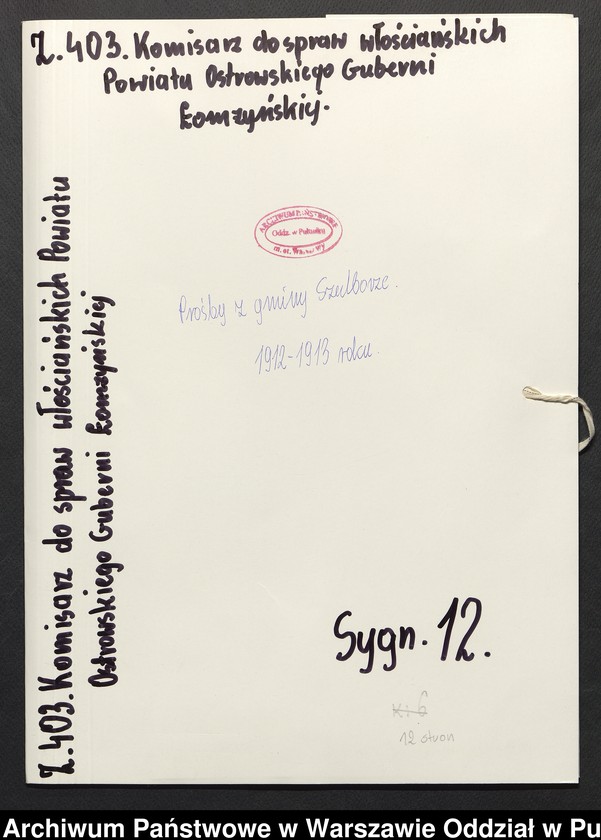 Z. 403. Komisarz do spraw włościańskich
Powiatu Ostrowskiego Guberni
Łomżyńskiej.
ARCHIWUM PAŃSTWOWE
Oddz. w Pułtusku
m. st. Warszawy
Prośby z gminy Szulborze.
1912-1913 roku.
Z. 403. Komisarz do spraw włościańskich Powiatu
Ostrowskiego Guberni Łomżyńskiej
Sygn. 12.
K: 6
12 stron
Archiwum Państwowe w Warszawie Oddział w Pu